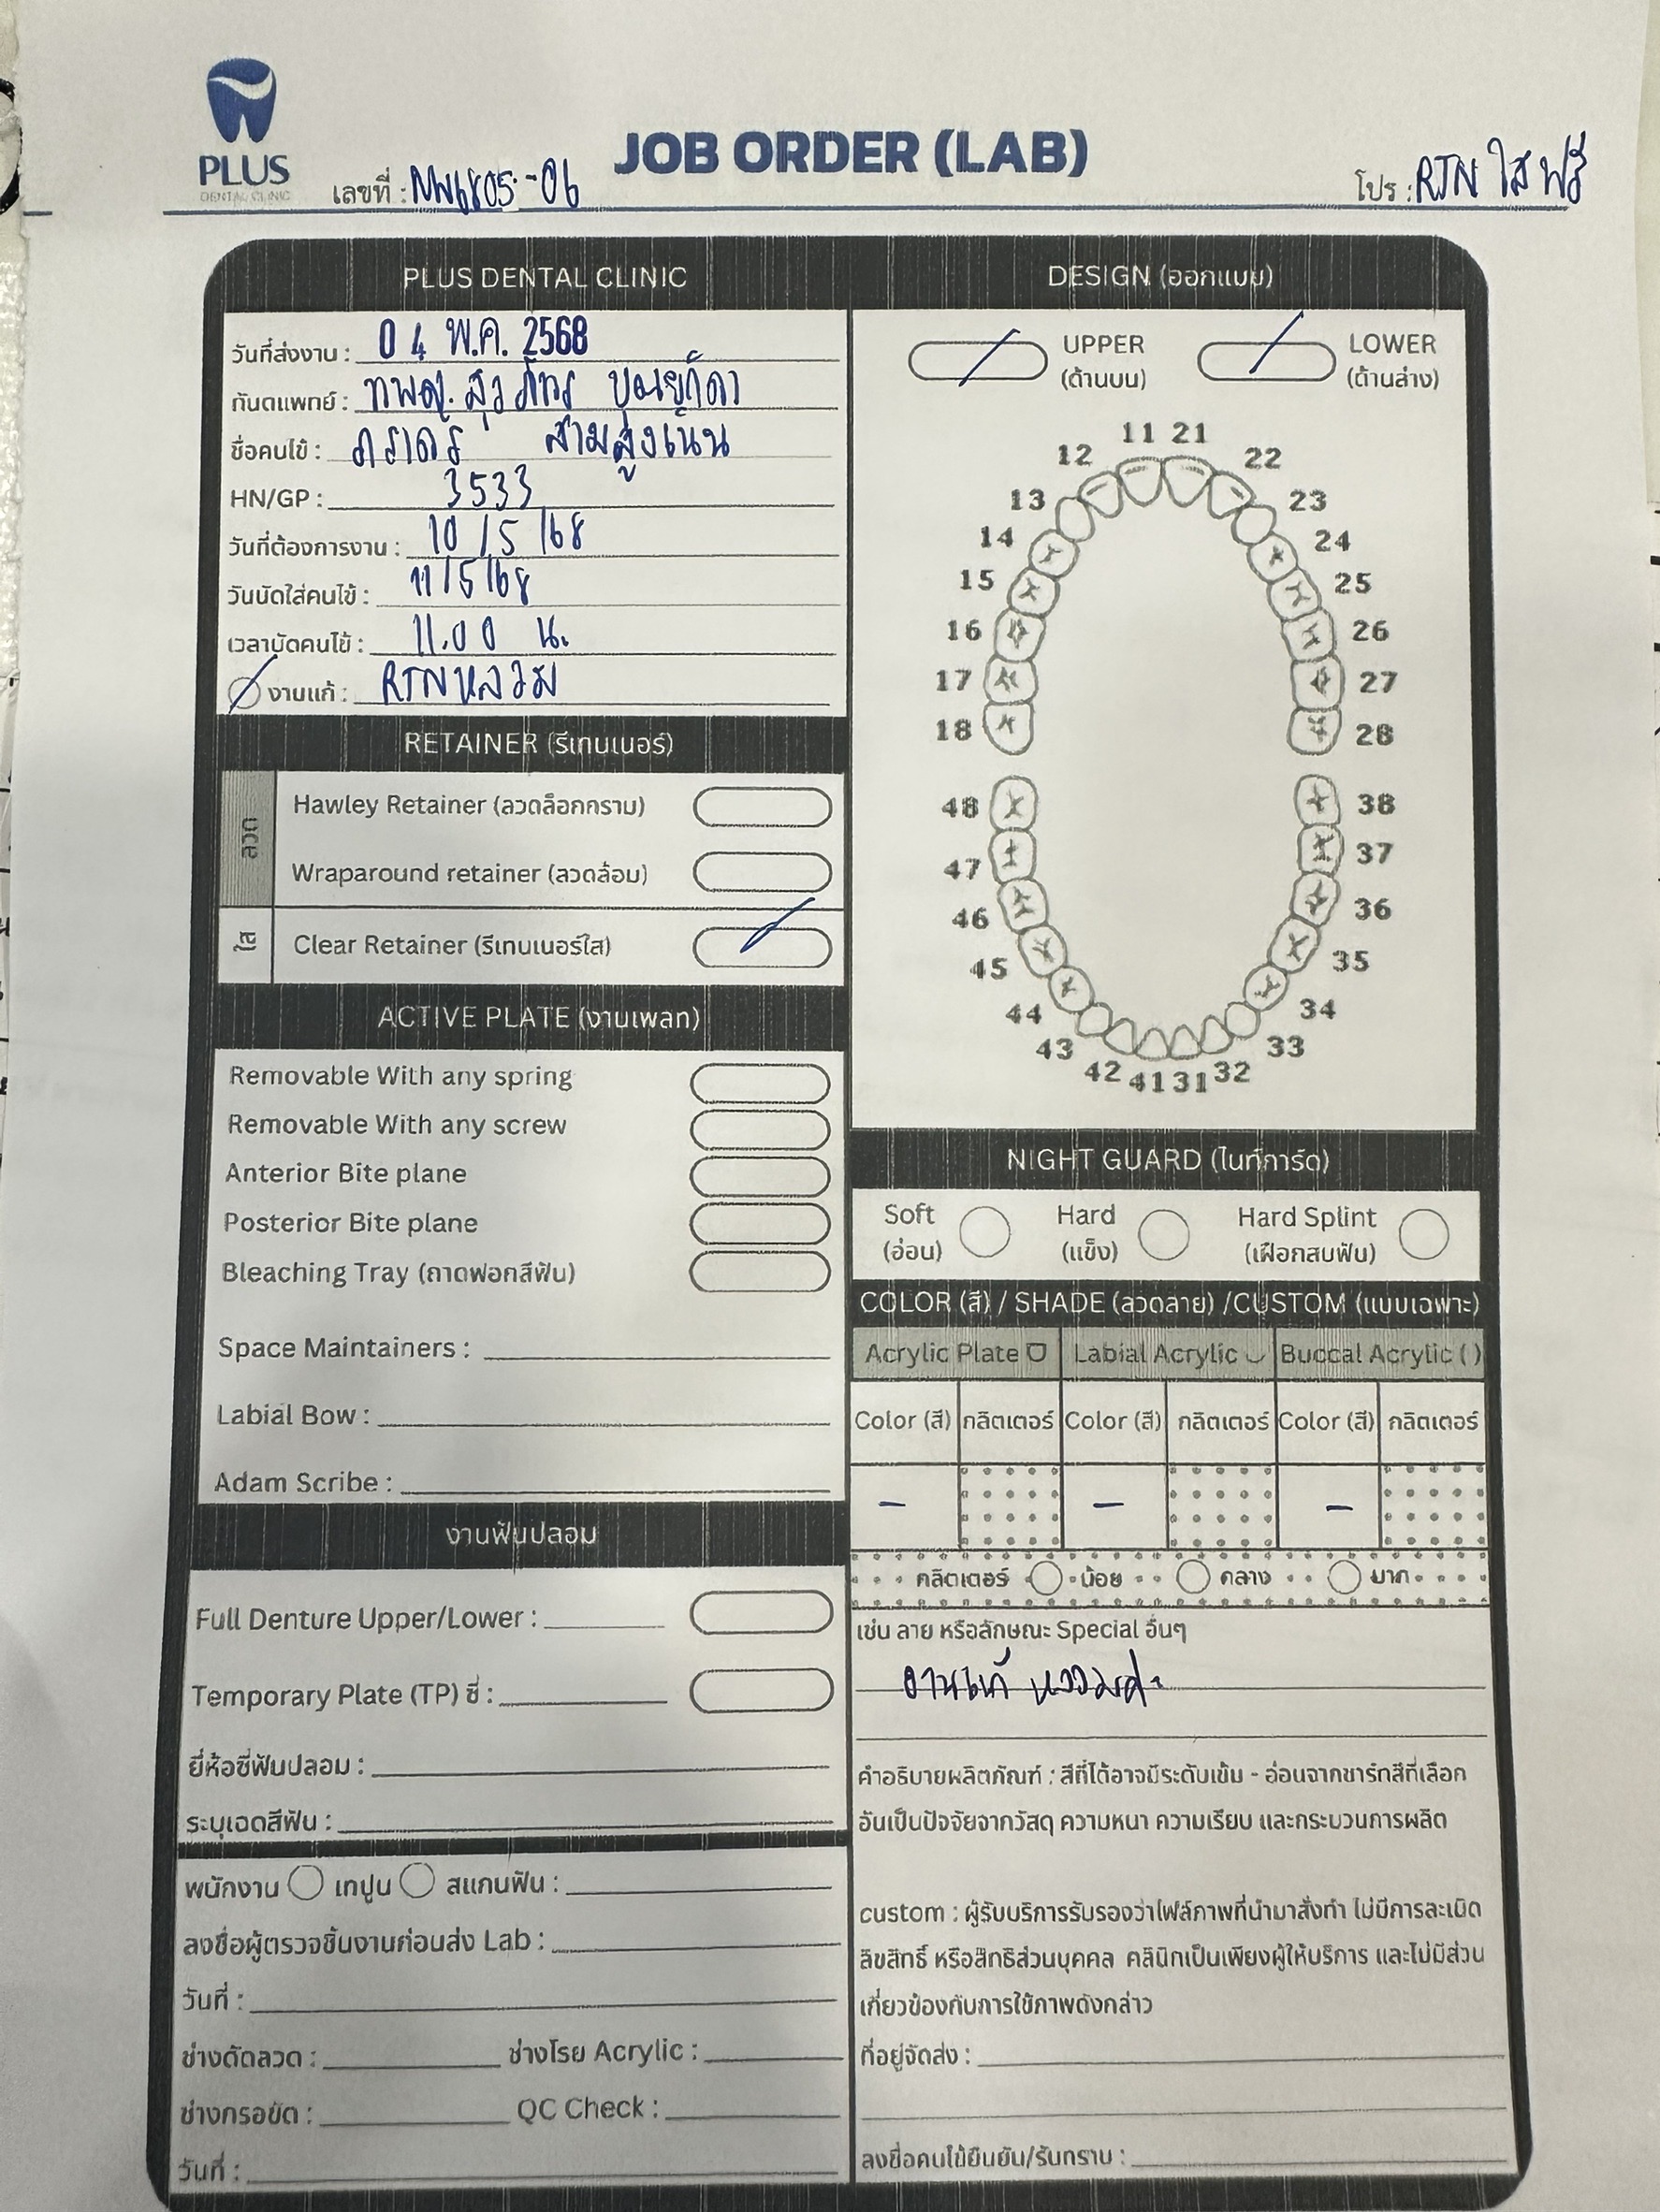 PLUS
DENTAL CLINIC
JOB ORDER (LAB)
เลขที่ : NW6805-06
โปร : RTN ใสฟรี
PLUS DENTAL CLINIC
วันที่ส่งงาน : 04 พ.ค. 2568
ทันตแพทย์ : ทพญ. สุวภัทร บุณยภักดา
ชื่อคนไข้ : ภราดร สามสูงเนิน
HN/GP : 3533
วันที่ต้องการงาน : 10/5/68
วันนัดใส่คนไข้ : 11/5/68
เวลานัดคนไข้ : 11.00 น.
งานแก้ : RTN หลวม
RETAINER (รีเทนเนอร์)
ลวด
Hawley Retainer (ลวดล็อกกราม)
Wraparound retainer (ลวดล้อม)
ใส
Clear Retainer (รีเทนเนอร์ใส)
ACTIVE PLATE (งานเพลท)
Removable With any spring
Removable With any screw
Anterior Bite plane
Posterior Bite plane
Bleaching Tray (ถาดฟอกสีฟัน)
Space Maintainers :
Labial Bow :
Adam Scribe :
งานฟันปลอม
Full Denture Upper/Lower :
Temporary Plate (TP) ซี่ :
ยี่ห้อซี่ฟันปลอม :
ระบุเฉดสีฟัน :
พนักงาน เทปูน สแกนฟัน :
ลงชื่อผู้ตรวจชิ้นงานก่อนส่ง Lab :
วันที่ :
ช่างดัดลวด : ช่างโรย Acrylic :
ช่างกรอขัด : QC Check :
วันที่ :
DESIGN (ออกแบบ)
UPPER LOWER
(ด้านบน) (ด้านล่าง)
11 21
12 22
13 23
14 24
15 25
16 26
17 27
18 28
48 38
47 37
46 36
45 35
44 34
43 33
42 41 31 32
NIGHT GUARD (ไนท์การ์ด)
Soft Hard Hard Splint
(อ่อน) (แข็ง) (เฝือกสบฟัน)
COLOR (สี) / SHADE (ลวดลาย) /CUSTOM (แบบเฉพาะ)
Acrylic Plate Labial Acrylic Buccal Acrylic ( )
Color (สี) กลิตเตอร์ Color (สี) กลิตเตอร์ Color (สี) กลิตเตอร์
- - -
กลิตเตอร์ น้อย กลาง มาก
เช่น ลาย หรือลักษณะ Special อื่นๆ
งานแก้ หลวมค่ะ
คำอธิบายผลิตภัณฑ์ : สีที่ได้อาจมีระดับเข้ม - อ่อนจากชาร์ทสีที่เลือก
อันเป็นปัจจัยจากวัสดุ ความหนา ความเรียบ และกระบวนการผลิต
custom : ผู้รับบริการรับรองว่าไฟล์ภาพที่นำมาสั่งทำ ไม่มีการละเมิด
ลิขสิทธิ์ หรือสิทธิส่วนบุคคล คลินิกเป็นเพียงผู้ให้บริการ และไม่มีส่วน
เกี่ยวข้องกับการใช้ภาพดังกล่าว
ที่อยู่จัดส่ง :
ลงชื่อคนไข้ยืนยัน/รับทราบ :